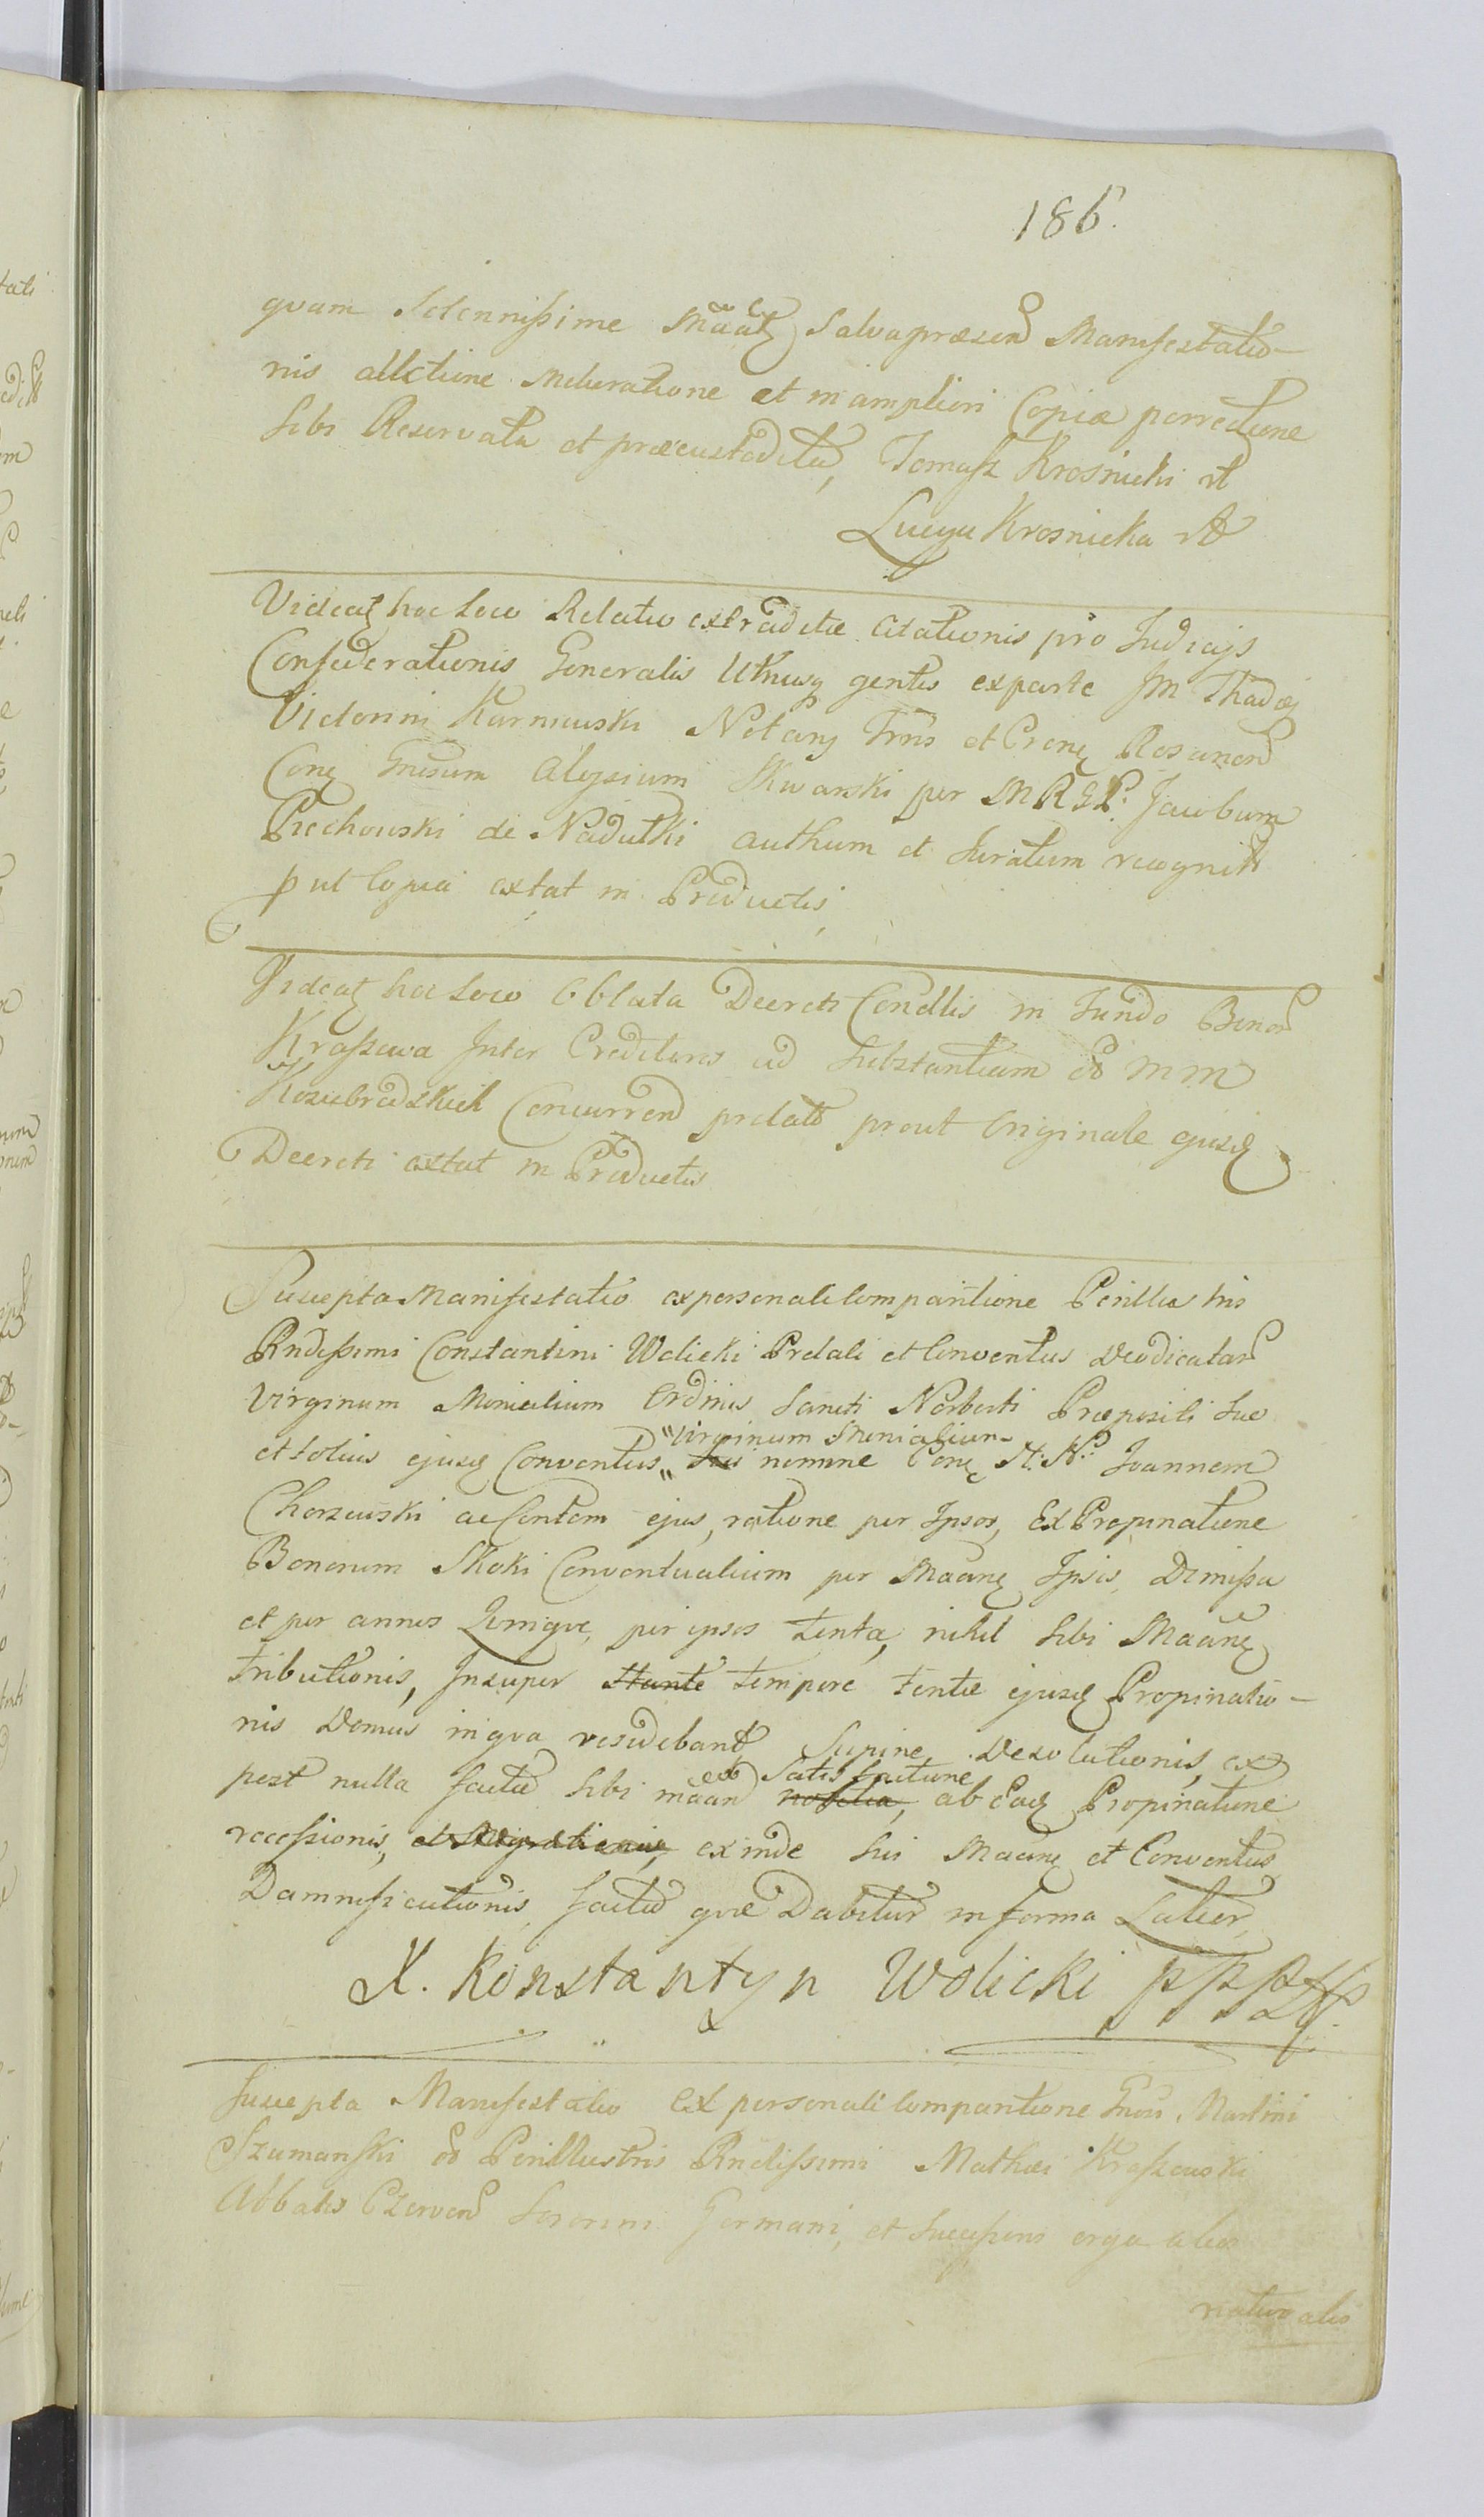 186.
quam Solennissime Maatz Salva præsend Manifestatio-
nis allctione Melioratione et in ampliori Copiæ porrectione
Sibi Reservata et præcustodita, Tomasz Krosnicki
Lucya Krosnicka
Videatz hoc loco Relatio extraditæ Citationis pro Judicijs
Confœderationis Generalis Utriusq gentis ex parte JM Thadæj
Victorini Karniewski Notarij Trris et Crcnẹ Rosanend
Conẹ Gnesum Aloysium Skwarski per MRGP. Jacobum
Piechowski de Nadutki authum et Juratum recognit
put Copia extat in Productis
Videatz hoc loco Oblata Decreti Condlis in Fundo Bonor
Kraszewa Inter Creditores ad Substantiam MM
Koziebrodzkich Concurrend prolati prout Originale ejusq
Decreti extat in Productis
Suscepta Manifestatio ex personali Comparitione Perillustris
Rndissimi Constantini Wolicki Prelati et Conventus Deodicatar
Virginum Monialium Ordinis Sancti Norberti Præpositi Suo
et totius ejusq Conventus " Virginum Monialium nomine Conẹ Joannem
Chorzewski ac Contem ejus, ratione per Ipsos, Ex Propinatione
Bonorum Skoki Conventualium per Maanẹ Ipsis, Dimissa
et per annos per ipsos tenta, nihil Sibi Maanẹ
tributionis, Insuper Stante tempore tentæ ejusq Propinatio-
nis Domus in qua residebant, Supine Desolutionis, ex
post nulla facta Sibi maand ex Satisfactione ab Eaq Propinatione
recessionis, exinde Sui Maanẹ et Conventus
Damnificationis facta quæ Dabitur in forma Latior
X. Konstantyn Wolicki
Suscepta Manifestatio Ex personali Comparitione Gnosi Martini
Szumanski Perillustris Rndissimi Mathæi Kraszewski
Abbatis Czerwen Sororini Germani, et Successoris erga alios